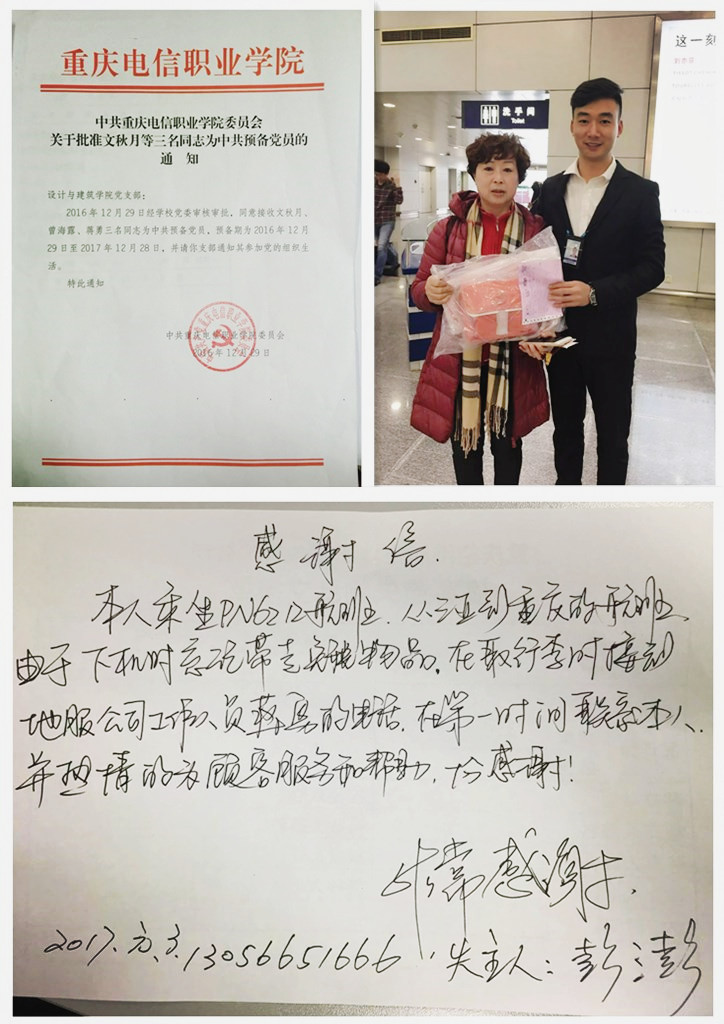 重庆电信职业学院
中共重庆电信职业学院委员会
关于批准文秋月等三名同志为中共预备党员的
通 知
设计与建筑学院党支部：
2016年12月29日经学校党委审核审批，同意接收文秋月、
曾海露、蒋勇三名同志为中共预备党员，预备期为2016年12月
29日至2017年12月28日，并请你支部通知其参加党的组织生
活。
特此通知
中共重庆电信职业学院委员会
2016年12月29日
洗手间
Toilet
这一刻
感谢信.
本人乘坐PN6212航班.从三亚到重庆的航班.
由于下机时忘记带走物品.在取行李时接到
地服公司工作人员蒋勇的电话.在第一时间联系本人.
并热情的为顾客服务和帮助,十分感谢!
非常感谢.
2017.元.3.13056651666
失主人:彭